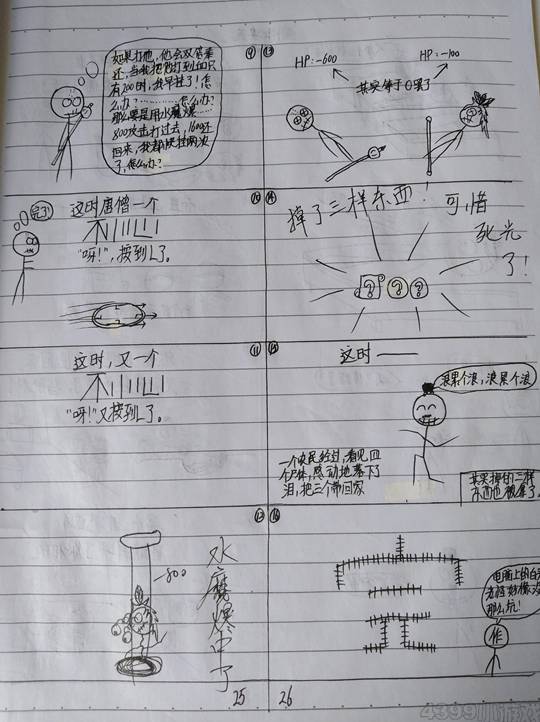 ⑨
如果打他，他会双倍奉
还，当我把他打到血只
有200时，我早挂了！怎
么办？………怎么办？
那么要是用水魔爆……
800攻击打过去，1600还
回来，我都快挂两次
了，怎么办？
⑩
完了！
这时唐僧一个
不小心
“呀！”，按到L了。
⑪
这时，又一个
不小心
“呀！”又按到L了。
⑫
-800
水魔爆中了
25
⑬
HP:-600
HP:-100
其实等于0累了
⑭
掉了三样东西！可惜
死光
了！
⑮
这时——
浪累个浪，浪累个浪
一个农民经过，看见四
个尸体，感动地落下了
泪，把三个带回家
其实掉的三样
东西也被拿了
⑯
完
电脑上的白
那么坑！
作
26
4399小游戏